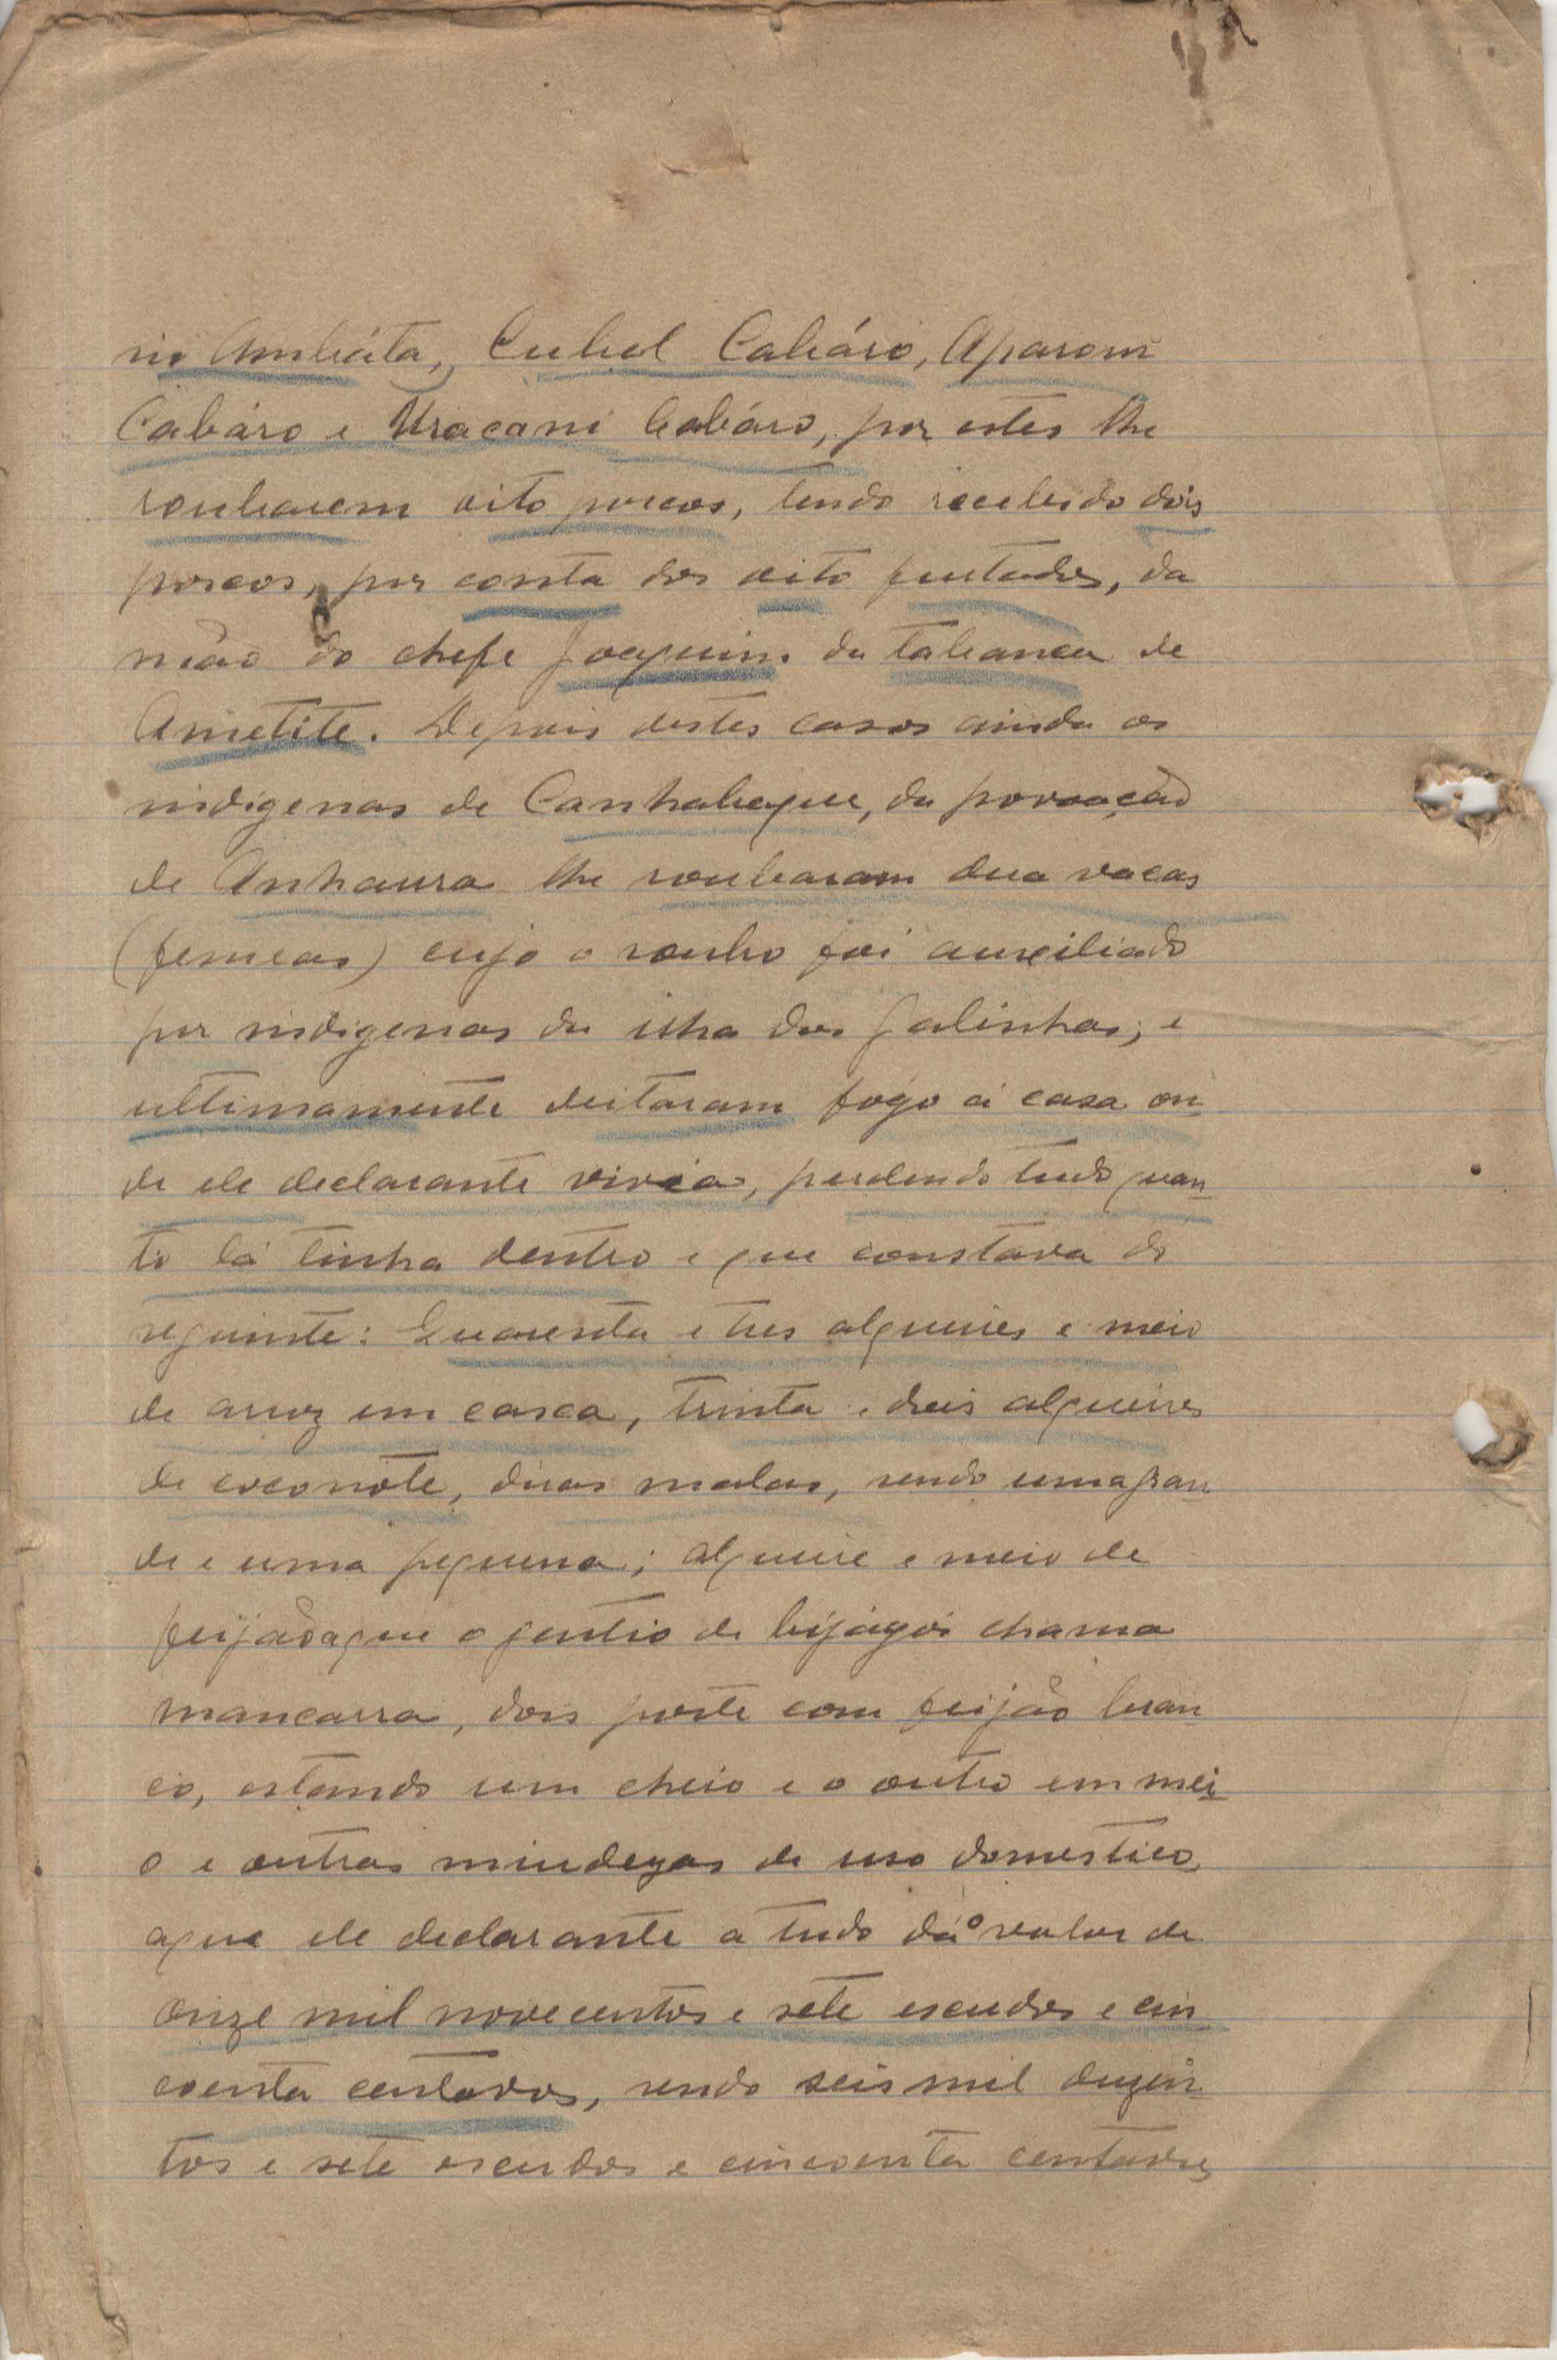 nio Ambáta, Cubul Cabáro, Aparom
Cabáro e Uracani Cabáro, por estes lhe
roubarem oito porcos, tendo recebido dois
porcos, por conta dos oito furtados, da
mão do chefe Joaquim da tabanca de
Ametite. Depois destes casos ainda os
indigenas de Canhabaque, da povoação
de Anhaura lhe roubaram dua vacas
(femeas) cujo o roubo foi auxiliado
por indigenas da ilha das Galinhas; e
ultimamente deitaram fogo á casa on
de ele declarante vivia, perdendo tudo quan
to lá tinha dentro e que constava do
seguinte: Quarenta e tres alqueires e meio
de arroz em casca, trinta e dois alqueires
de coconote, duas malas, sendo uma gran
de e uma pequena; alqueire e meio de
feijão que o gentio de bijagós chama
mancarra, dois pote com feijão bran
co, estando um cheio e o outro em mei
o e outras miudezas de uso domestico
aque ele declarante a tudo dá o valor de
onze mil novecentos e sete escudos e cin
coenta centavos, sendo seis mil duzen
tos e sete escudos e cincoenta centavos